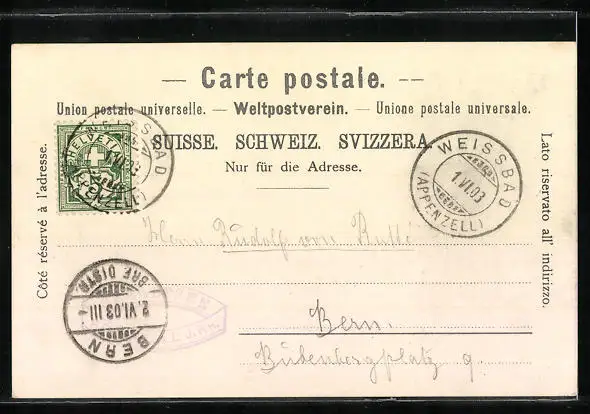 — Carte postale. —
Union postale universelle. — Weltpostverein. — Unione postale universale.
SUISSE. SCHWEIZ. SVIZZERA.
Nur für die Adresse.
Côté réservé à l'adresse.
Lato riservato all' indirizzo.
HELVETIA
WEISSBAD
1.VI.03
(APPENZELL)
WEISSBAD
1.VI.03
(APPENZELL)
Herrn Rudolf von
Bern.
Bubenbergplatz 9.
BERN
2.VI.03 III
BRF. DISTR.